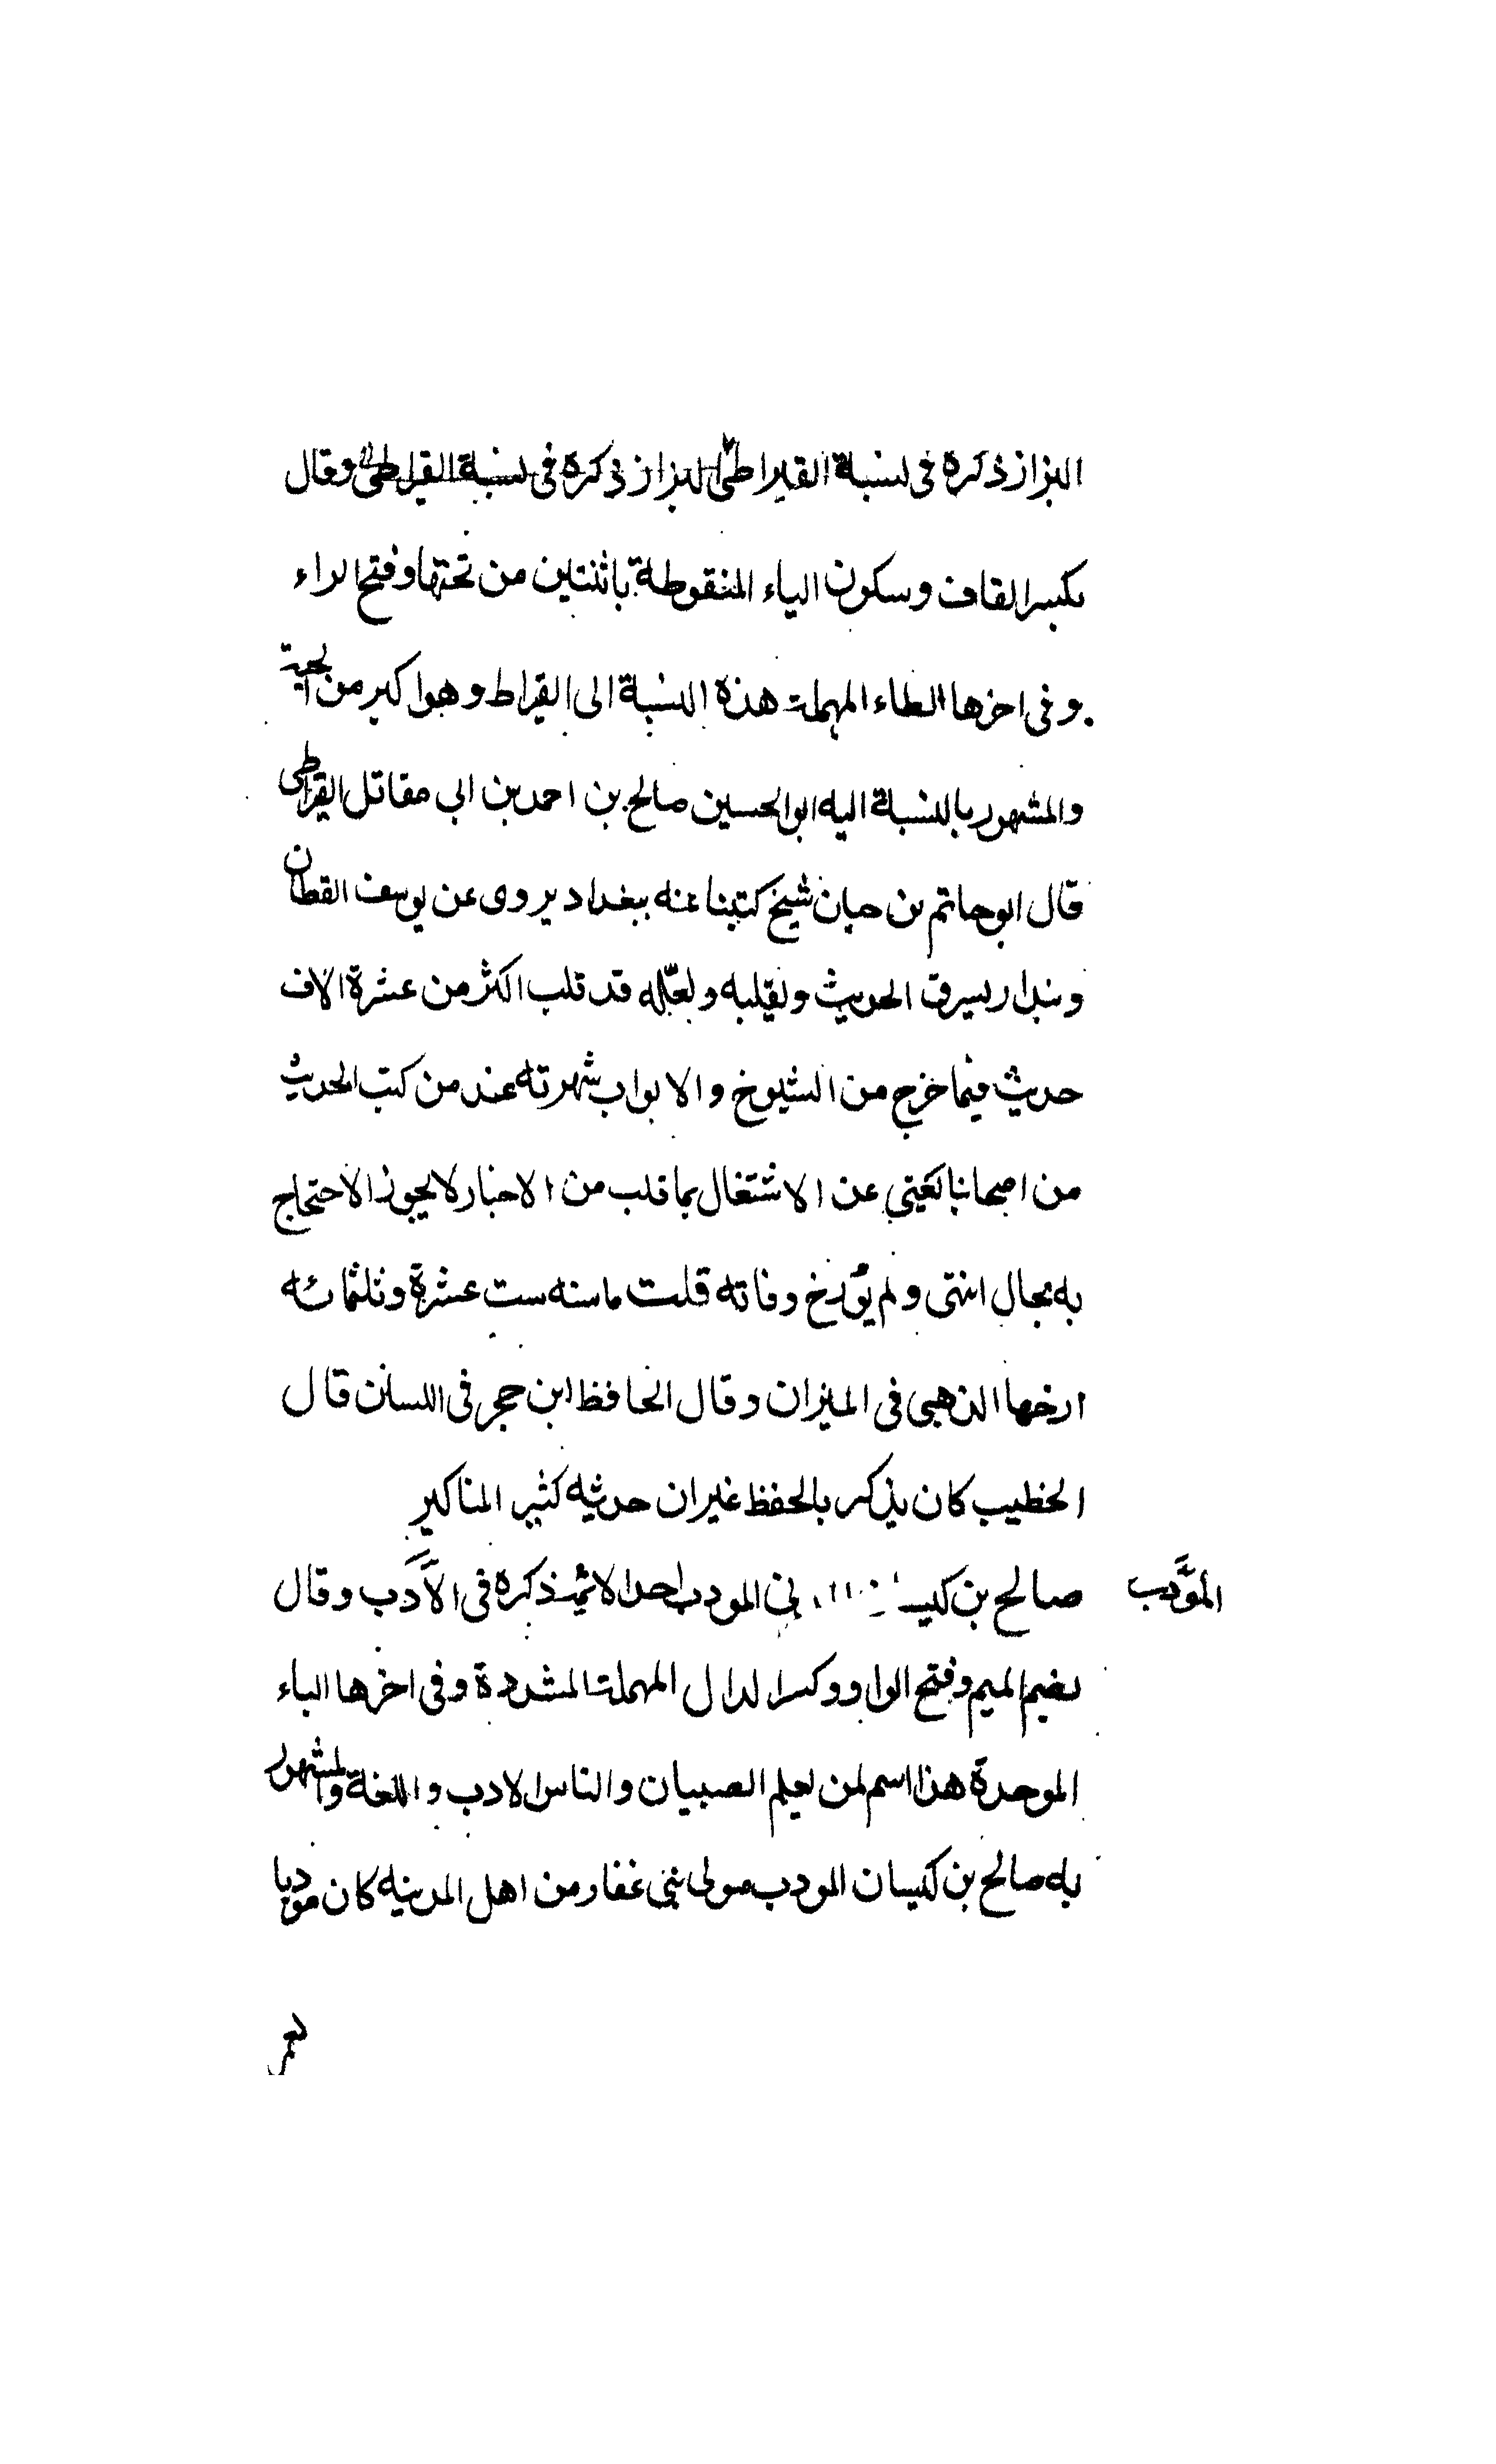 البزاز ذكره فى نسبة القيراطى البزاز ذكره فى نسبة القيراطى وقال
بكسر القاف وسكون الياء المنقوطة باثنتين من تحتها وفتح الراء
وفى اخرها الطاء المهملة هذه النسبة الى القيراط وهو اكبر من الحبة
والمشهور بالنسبة اليه ابو الحسين صالح بن احمد بن ابى مقاتل القيراطى
قال ابو حاتم بن حبان شيخ كتبنا عنه ببغداد يروى عن يوسف القطان
وبندار يسرق الحديث ويقلبه ولعله قد قلب اكثر من عشرة الاف
حديث فيما خرج من الشيوخ والابواب شهرته عند من كتب الحديث
من اصحابنا تغنى عن الاشتغال بما قلب من الاخبار لا يجوز الاحتجاج
به بحال انتهى ولم يؤرخ وفاته قلت مات سنه ست عشرة وثلثمائه
ارخها الذهبى فى الميزان وقال الحافظ ابن حجر فى اللسان قال
الخطيب كان يذكر بالحفظ غير ان حديثه كثير المناكير
المؤدب صالح بن المودب احد الائمة ذكره فى الأدب وقال
بضم الميم وفتح الواو وكسر الدال المهملة المشددة وفى اخرها الباء
الموحدة هذا اسم لمن يعلم الصبيان والناس الادب واللغة والمشهور
به صالح بن كيسان المودب مولى بنى غفار من اهل المدينه كان مودبا
لعمر